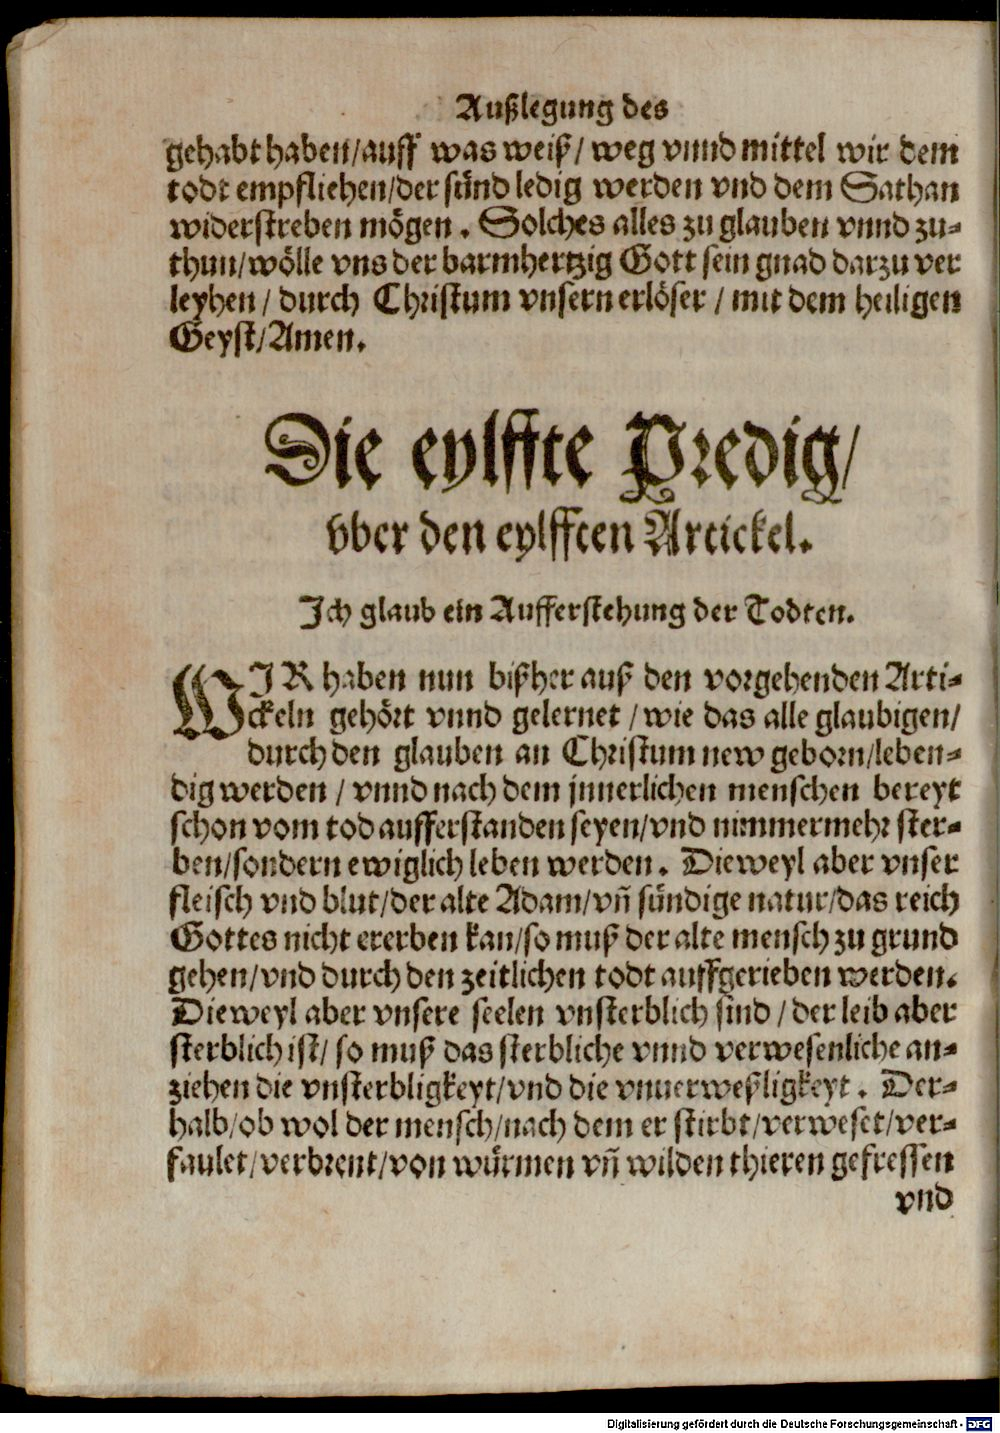 Außlegung des
gehabt haben/auff was weiß/ weg vnnd mittel wir dem
todt empfliehen/der sünd ledig werden vnd dem Sathan
widerstreben mögen. Solches alles zu glauben vnnd zu-
thun/wölle vns der barmhertzig Gott sein gnad darzu ver
leyhen/ durch Christum vnsern erlöser/ mit dem heiligen
Geyst/Amen.
Die eylffte Predig/
vber den eylfften Artickel.
Ich glaub ein Aufferstehung der Todten.
WIR haben nun bißher auß den vorgehenden Arti-
ckeln gehört vnnd gelernet/wie das alle glaubigen/
durch den glauben an Christum new geborn/leben-
dig werden/ vnnd nach dem jnnerlichen menschen bereyt
schon vom tod aufferstanden seyen/vnd nimmermehr ster-
ben/sondern ewiglich leben werden. Dieweyl aber vnser
fleisch vnd blut/der alte Adam/vñ sündige natur/das reich
Gottes nicht ererben kan/so muß der alte mensch zu grund
gehen/vnd durch den zeitlichen todt auffgerieben werden.
Dieweyl aber vnsere seelen vnsterblich sind/der leib aber
sterblich ist/ so muß das sterbliche vnnd verwesenliche an-
ziehen die vnsterbligkeyt/vnd die vnuerweßligkeyt. Der-
halb/ob wol der mensch/nach dem er stirbt/verweset/ver-
faulet/verbrent/von würmen vñ wilden thieren gefressen
vnd
Digitalisierung gefördert durch die Deutsche Forschungsgemeinschaft - DFG